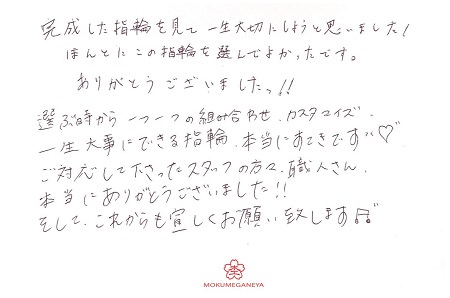 完成した指輪を見て一生大切にしようと思いました!
ほんとにこの指輪を選んでよかったです。
ありがとうございましたっ!!
選ぶ時から一つ一つの組み合わせ、カスタマイズ、
一生大事にできる指輪、本当にすてきです♡
ご対応して下さったスタッフの方々、職人さん、
本当にありがとうございました!!
そして、これからも宜しくお願い致します
MOKUMEGANEYA